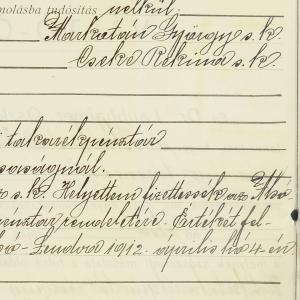 molásba tudósítás nélkül.
Markotán György s. k.
Cseke Regina s. k.
takarékpénztár
saságnál.
s. k. Helyettem fizettessék az Alsó-
pénztár rendeletére. Értékét fel-
Lendva 1912. április hó 4-én